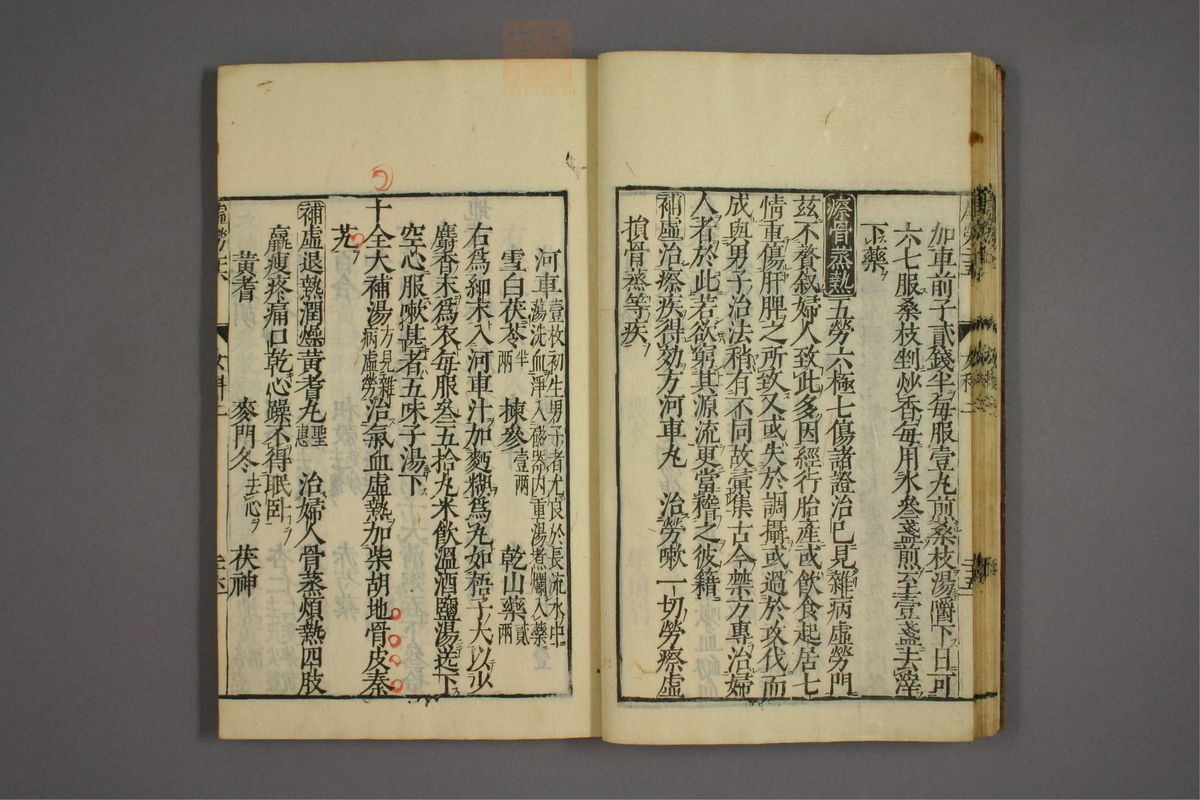 加車前子貳錢半每服壹丸煎桑枝湯嚼下日可
六七服桑枝剉炒香每用水叁盞煎至壹盞去滓
下藥
瘵骨蒸熱五勞六極七傷諸證治已見雜病虛勞門
茲不贅敘婦人致此多因經行胎產或飲食起居七
情重傷肝脾之所致又或失於調攝或過於攻伐而
成與男子治法稍有不同故彙集古今禁方專治婦
人者於此若欲窮其源流更當稽之彼籍
補虛治瘵疾得効方河車丸 治勞嗽一切勞瘵虛
損骨蒸等疾
河車壹枚初生男子者尤良於長流水中
蕩洗血淨入磁器內重湯煮爛入藥
雪白茯苓半兩 揀參壹兩 乾山藥貳兩
右爲細末入河車汁加麪糊爲丸如梧子大以少
麝香末爲衣每服叁五拾丸米飲溫酒鹽湯送下
空心服嗽甚者五味子湯下
十全大補湯方見雜病虛勞治氣血虛熱加柴胡地骨皮秦
艽
補虛退熱潤燥黃耆丸聖惠 治婦人骨蒸煩熱四肢
羸瘦疼痛口乾心躁不得眠臥
黃耆 麥門冬去心 茯神